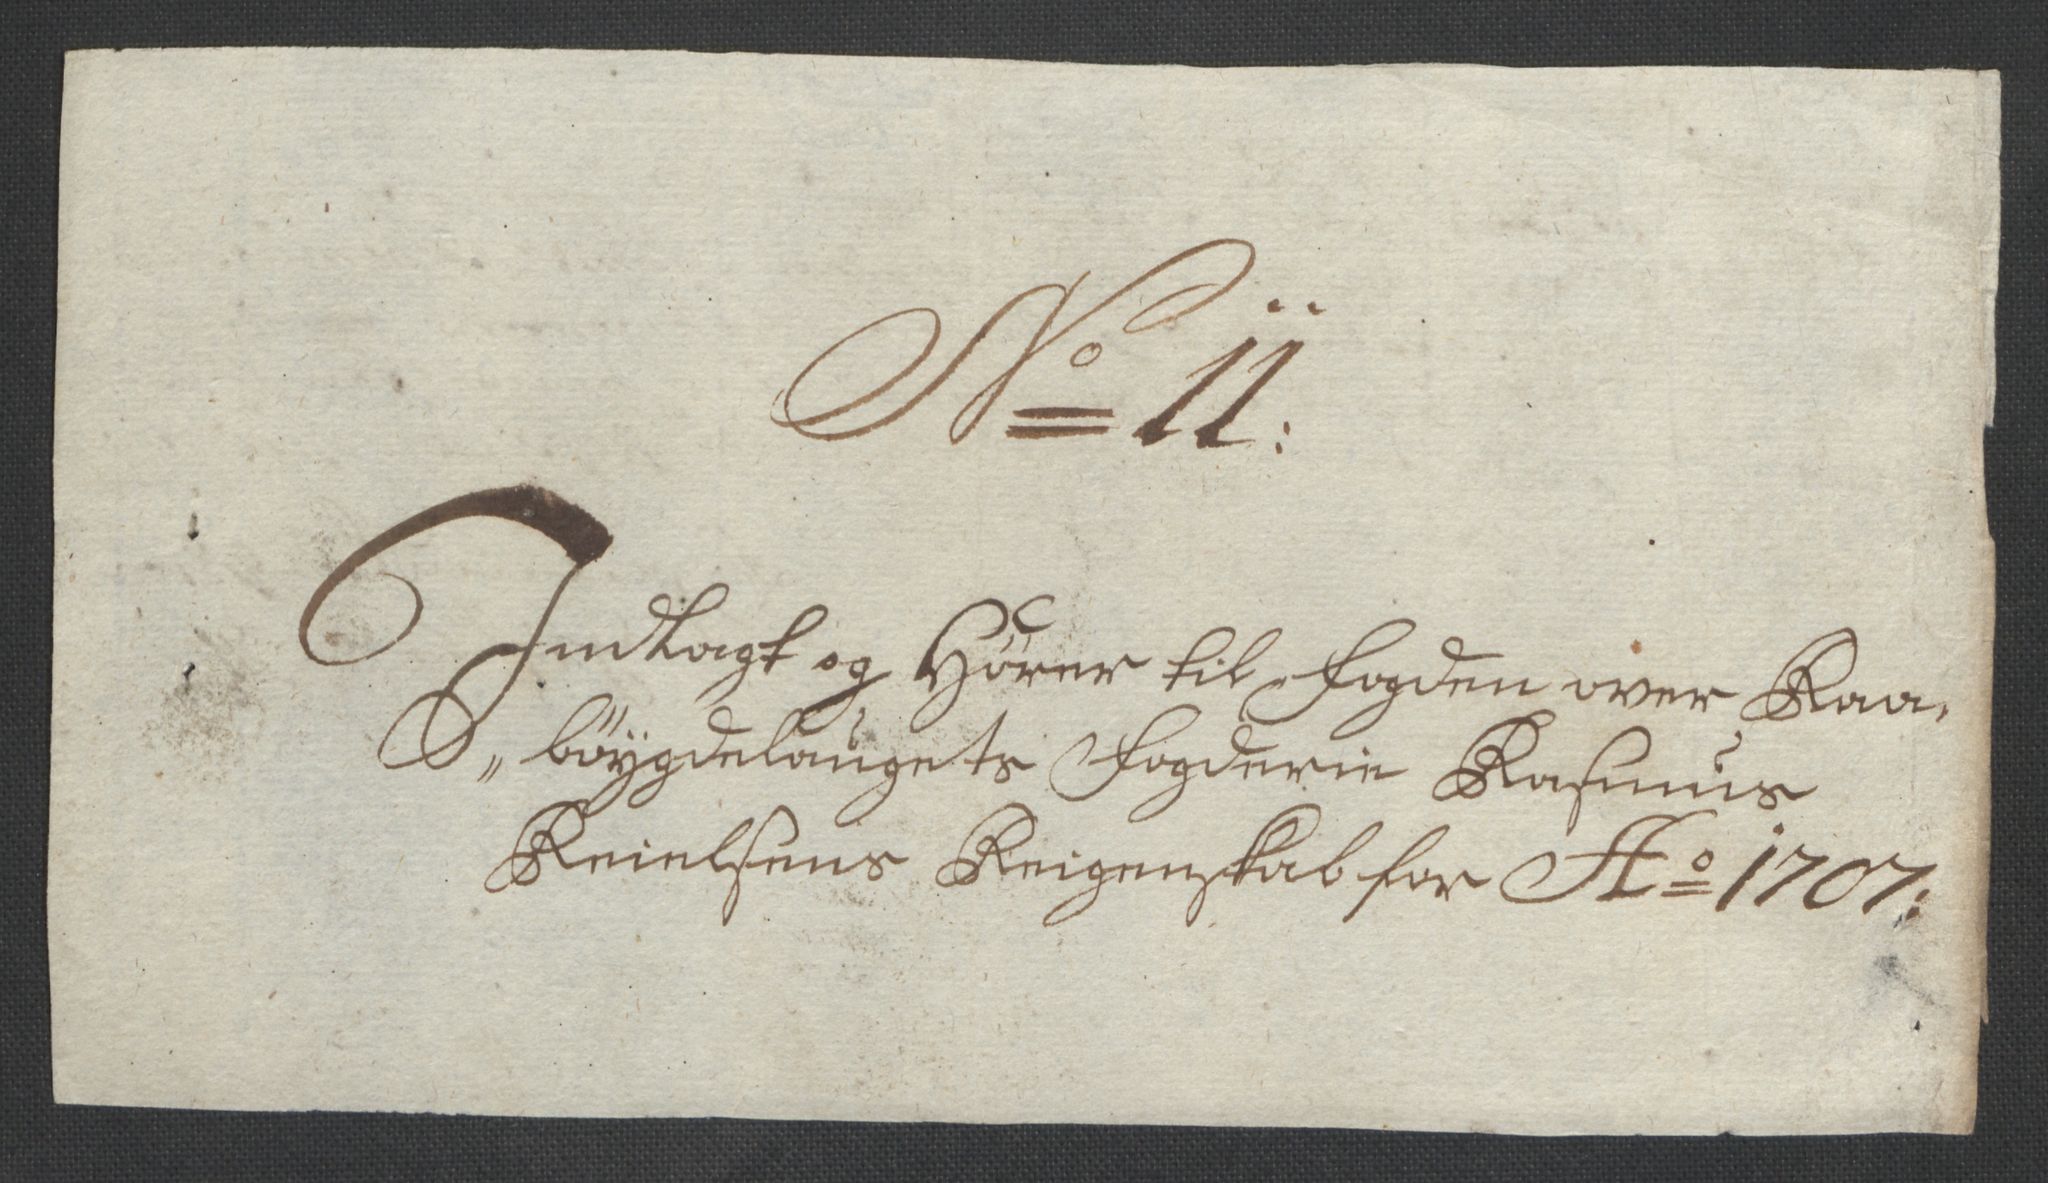 No 11:
Indlagt og Hörer til Fogden over Raa,
böygdelaugets Fogderie Rasmus
Keielsens Reigenskab for Ao 1707: